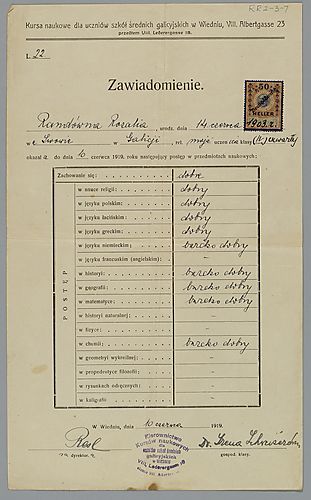 RR2-3-7
Kursa naukowe dla uczniów szkół średnich galicyjskich w Wiedniu, VIII, Albertgasse 23
przedtem VIII. Lederergasse 18.
L 22
Zawiadomienie.
50
HELLER
1903 r.
Randówna Rozalia, urodz. dnia 14 czerwca
we Lwowie w Galicji, rel. mojż uczennica klasy (IV) czwartej
okazał a do dnia 10 czerwca 1919. roku następujący postęp w przedmiotach naukowych:
Zachowanie się: dobre
POSTĘP
w nauce religii: dobry
w języku polskim: dobry
w języku łacińskim: dobry
w języku greckim: dobry
w języku niemieckim: bardzo dobry
w języku francuskim (angielskim): –
w historyi: bardzo dobry
w geografii: bardzo dobry
w matematyce: bardzo dobry
w historyi naturalnej: –
w fizyce: –
w chemii: bardzo dobry
w geometryi wykreślnej: –
w propedeutyce filozofii: –
w rysunkach odręcznych: –
w kaligrafii –
W Wiedniu, dnia 10 czerwca 1919.
Dr. Irena
dyrektor.
gospod. klasy.
Kierownictwo
Kursów naukowych
dla uczniów szkół średnich
galicyjskich
w Wiedniu
VIII. Lederergasse 18